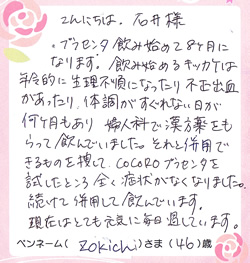 こんにちは。石井様
。プラセンタ飲み始めて8ヶ月に
なります。飲み始めるキッカケは
年令的に生理不順になったり不正出血
があったり、体調がすぐれない日が
何ヶ月もあり 婦人科で漢方薬をも
らって飲んでいました。それと併用で
きるものを捜して、COCOROプラセンタを
試したところ全く症状がなくなりました。
続けて併用して飲んでいます。
現在はとても元気に毎日過しています。
ペンネーム( Zokichi )さま (46) 歳